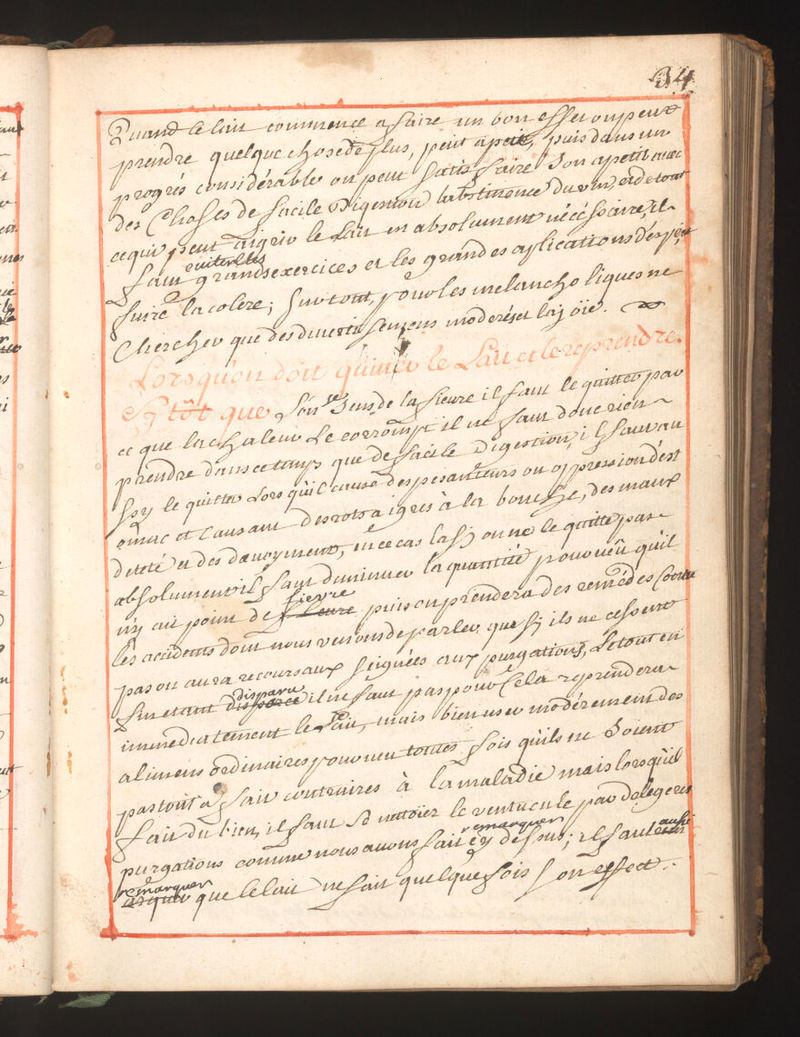 34
Quand le lait commence a faire un bon effet on peut
prendre quelque chose de plus, petit a petit, puis dans un
progrés considérable on peut satisfaire son apetit avec
des Choses de facile Digestion labstinence du vin, et de tout
ce qui peut aigrir le Lait en absolument nécéssaire, il
faut eviter les grands exercices et les grandes aplications d'esprit
fuire la colere; surtout, pour les melancholiques ne
Chercher que des divertissemens moderés et la joie.
Lors qu'on doit quitter le Lait et le reprendre.
Si tôt que l'on se sens de la fievre il faut le quitter par
ce que la chaleur le corrompt il ne faut donc rien
prendre dans ce temps que de facile Digestion, il faut au
ssy le quitter Lors qu'il cause des pesanteurs ou oppression d'est
omac et causant des rots aigres à la bouche, des maux
de tete et des devoyment, en ce cas la si on ne le quitte pas
absolument il faut diminuer la quantité pourveu qu'il
n'y ait point de fievre puis on prendera des remédes Contre
les accidents dont nous venons de parler que si ils ne cessent
pas on aura recours aux seignées aux purgations, Le tout en
fin etant disparu il ne faut pas pour Cela reprendera
immediatement le Lait, mais bien user moderement des
alimens ordinaires pourveu toutes fois qu'ils ne soient
pas tout a fait contraires à la maladie mais lorsqu'il
fait du bien, il faut se nettoier le ventricule par de legeres
purgations comme nous avons fait remarquer cy dessus; il faut aussi
remarquer que le lait ne fait quelque fois son effect.